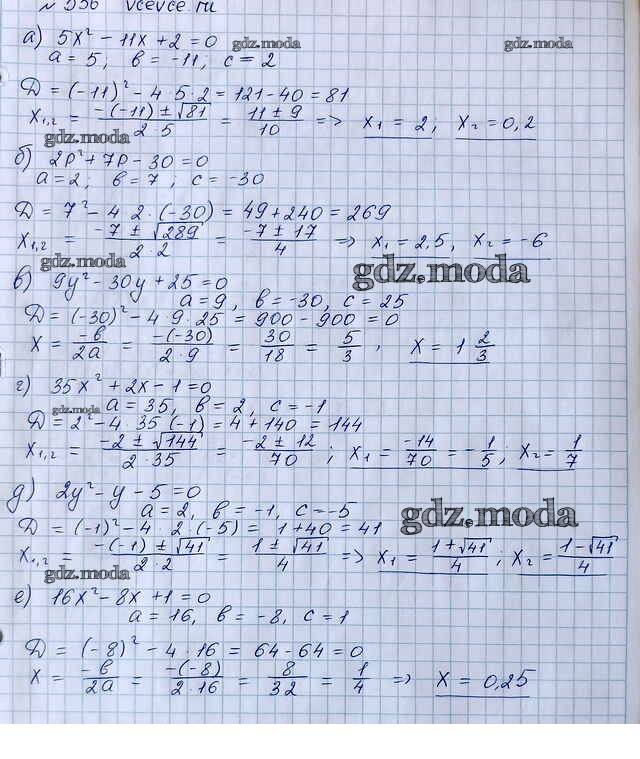 № 536 vcevce.ru
а) 5x² − 11x + 2 = 0 gdz.moda
a = 5, b = −11; c = 2
D = (−11)² − 4 · 5 · 2 = 121 − 40 = 81
x₁,₂ = (−(−11) ± √81)/(2 · 5) = (11 ± 9)/10 => x₁ = 2; x₂ = 0,2
gdz.moda
б) 2p² + 7p − 30 = 0
a = 2; b = 7; c = −30
D = 7² − 4 2 · (−30) = 49 + 240 = 269
x₁,₂ = (−7 ± √289)/(2 · 2) = (−7 ± 17)/4 => x₁ = 2,5, x₂ = −6
gdz.moda gdz.moda
в) 9y² − 30y + 25 = 0
a = 9, b = −30, c = 25
D = (−30)² − 4 · 9 · 25 = 900 − 900 = 0
x = −b/2a = −(−30)/(2 · 9) = 30/18 = 5/3, x = 1 2/3
г) 35x² + 2x − 1 = 0
gdz.moda a = 35, b = 2, c = −1
D = 2² − 4 · 35 (−1) = 4 + 140 = 144
x₁,₂ = (−2 ± √144)/(2 · 35) = (−2 ± 12)/70; x₁ = −14/70 = −1/5; x₂ = 1/7
д) 2y² − y − 5 = 0
a = 2, b = −1, c = −5 gdz.moda
D = (−1)² − 4 · 2 · (−5) = 1 + 40 = 41
x₁,₂ = (−(−1) ± √41)/(2 · 2) = (1 ± √41)/4 => x₁ = (1 + √41)/4; x₂ = (1 − √41)/4
gdz.moda
е) 16x² − 8x + 1 = 0
a = 16, b = −8, c = 1
D = (−8)² − 4 · 16 = 64 − 64 = 0
x = −b/2a = −(−8)/(2 · 16) = 8/32 = 1/4 => x = 0,25